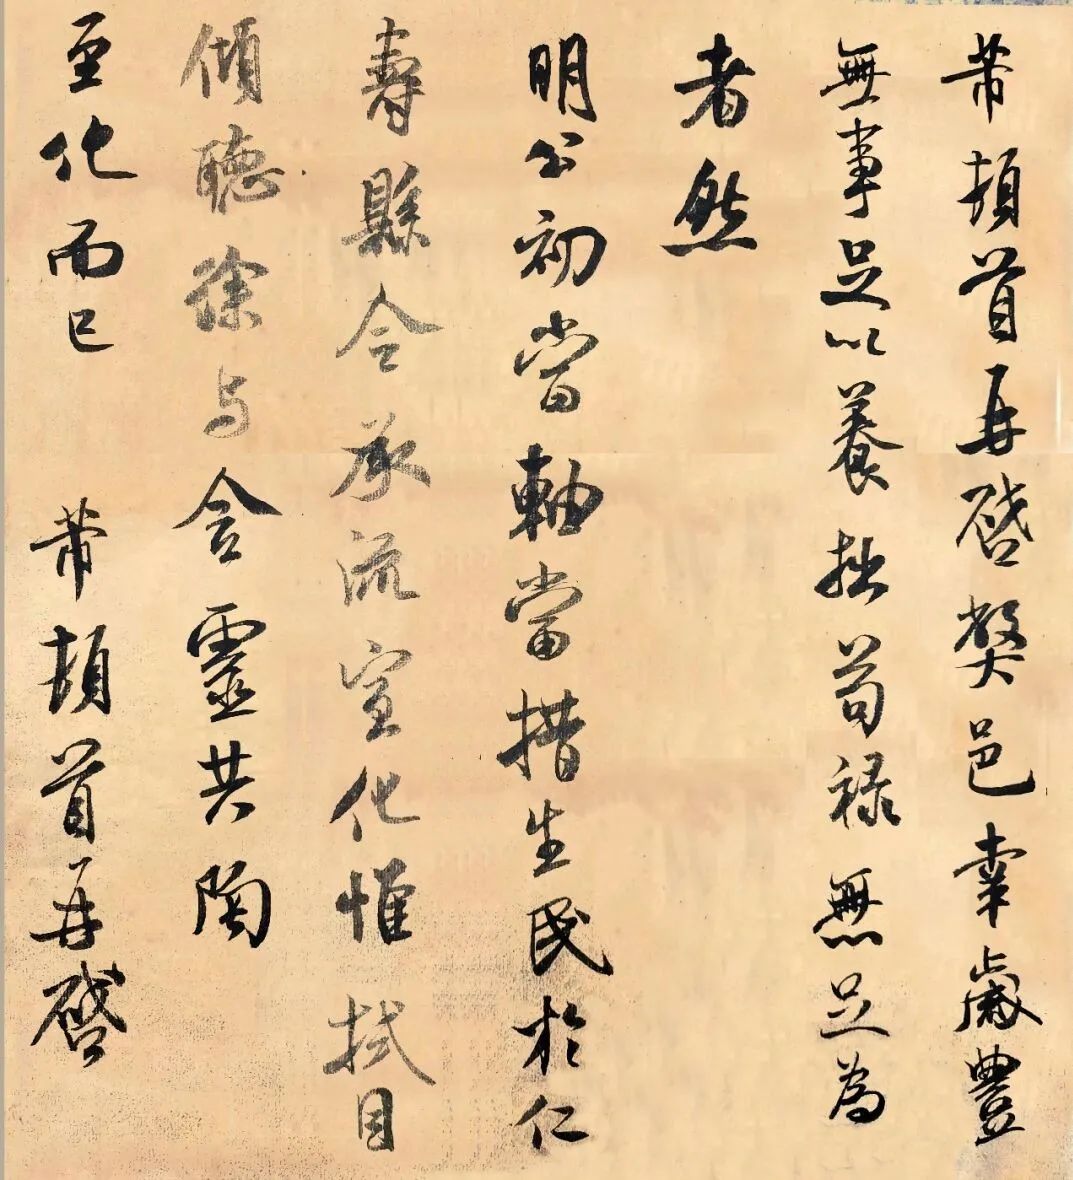 芾頓首再啓弊邑幸歲豐
無事足以養拙苟禄無足為
者然
明公初當軸當措生民於仁
壽縣令承流宣化惟拭目
傾聽徐与含靈共陶
至化而已 芾頓首再啓